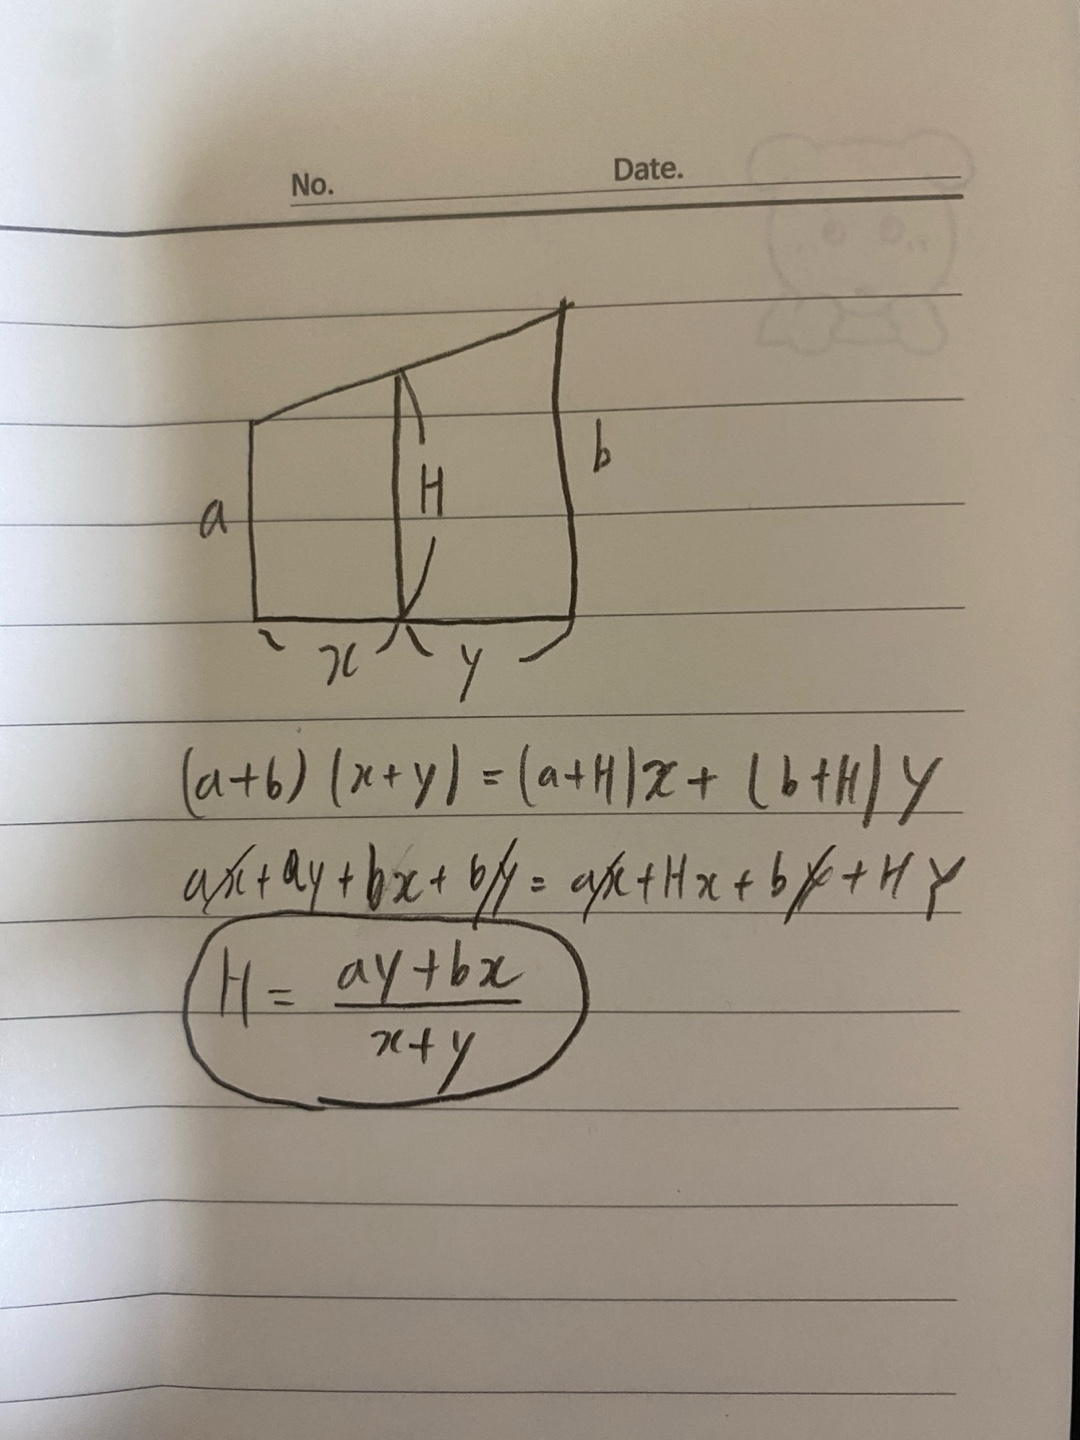 No. Date.
a H b
x y
(a+b) (x+y) = (a+H)x + (b+H) y
ax + ay + bx + by = ax + Hx + by + Hy
H = \frac{ay+bx}{x+y}